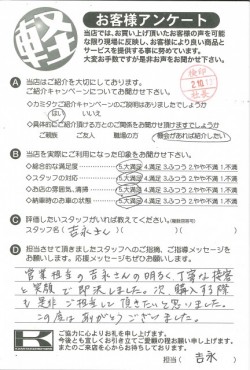 軽
お客様アンケート
当店では、お買い上げ頂いたお客様の声を可能
な限り現場に反映し、お客様により良い商品と
サービスを提供する事に努めています。
大変お手数ですが是非お声をお聞かせ下さい。
検印
店長
A 当店はご紹介を大切にしております。
ご紹介キャンペーンについてお聞かせ下さい。
・カミタケご紹介キャンペーンのご説明はありましたでしょうか
はい いいえ
・具体的にご紹介頂ける方とのご関係をお聞かせ頂けますでしょうか
ご親族 ご友人 職場の方 機会があれば紹介したい
B 当店を実際にご利用になった印象をお聞かせ下さい。
・総合的な満足度 5.大満足 4.満足 3.ふつう 2.やや不満 1.不満
・スタッフの対応 5.大満足 4.満足 3.ふつう 2.やや不満 1.不満
・お店の雰囲気、清掃 5.大満足 4.満足 3.ふつう 2.やや不満 1.不満
・納車時のお車の状態 5.大満足 4.満足 3.ふつう 2.やや不満 1.不満
C 評価したいスタッフがいれば教えてください。(複数回答可)
スタッフ名( 吉永さん )
D 担当させて頂きましたスタッフへのご指摘、ご指導メッセージを
お願いします。応援メッセージもぜひお願いします。
営業担当の吉永さんの明るく丁寧な接客
と笑顔で即決しました。次購入する際
も是非ご担当して頂きたいと思いました。
この度はありがとうございました。
K
ご協力に心よりお礼を申し上げます。
今後とも宜しくお引き立てご愛顧の程お願い申し上げます。
またのご来店を心からお待ちしております。
担当( 吉永 )